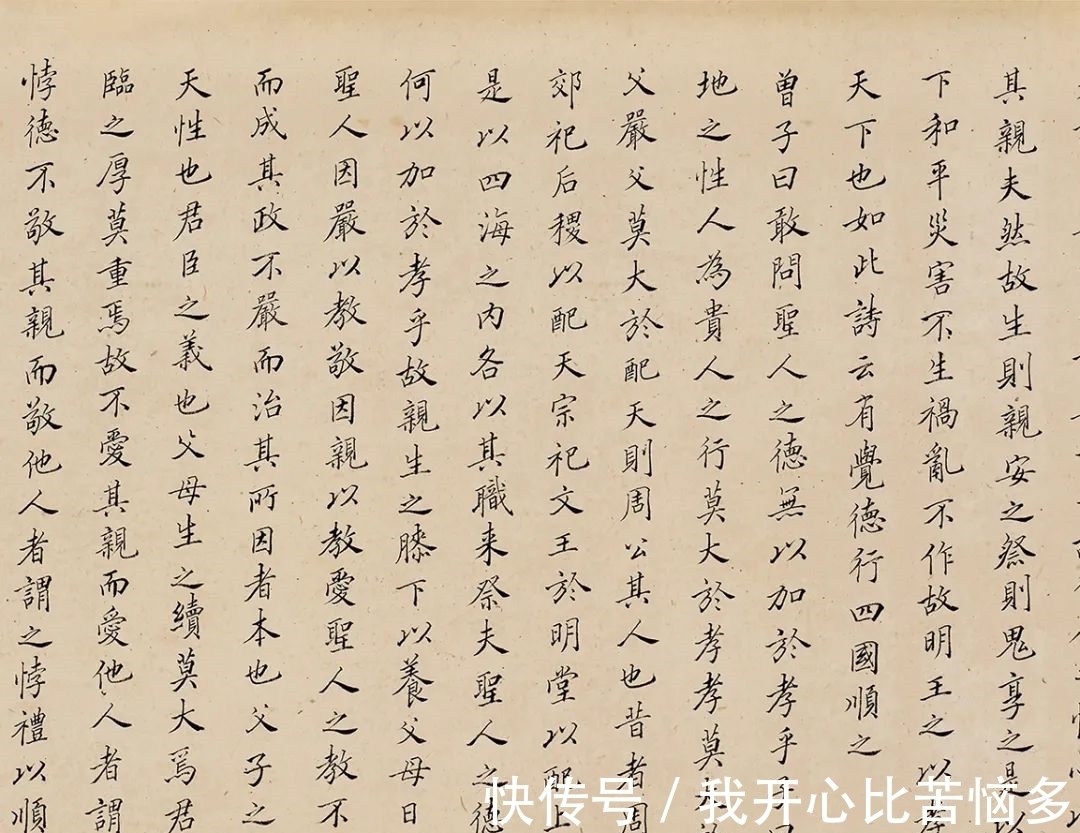 其親夫然故生則親安之祭則鬼享之是以
下和平災害不生禍亂不作故明王之以孝
天下也如此詩云有覺德行四國順之
曾子曰敢問聖人之德無以加於孝乎子曰
地之性人為貴人之行莫大於孝孝莫大
父嚴父莫大於配天則周公其人也昔者周
郊祀后稷以配天宗祀文王於明堂以配上
是以四海之内各以其職来祭夫聖人之德
何以加於孝乎故親生之膝下以養父母日
聖人因嚴以教敬因親以教愛聖人之教不
而成其政不嚴而治其所因者本也父子之
天性也君臣之義也父母生之續莫大焉君
臨之厚莫重焉故不愛其親而愛他人者謂
悖德不敬其親而敬他人者謂之悖禮以順
快传号/我开心比苦恼多